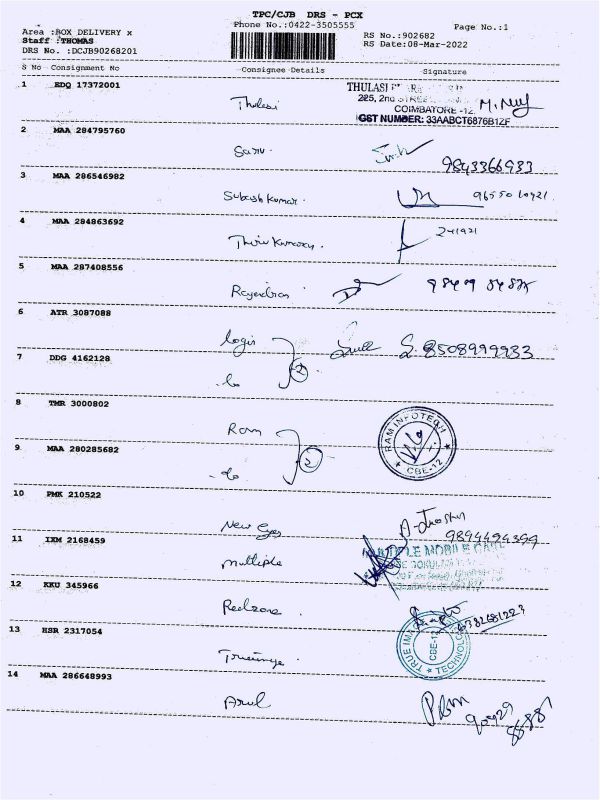 TPC/CJB DRS - PCX
Phone No.:0422-3505555
Page No.:1
Area :BOX DELIVERY x
Staff :THOMAS
DRS No. :DCJB90268201
RS No.:902682
RS Date:08-Mar-2022
S No Consignment No Consignee Details Signature
1 EDQ 17372001
Thulasi
THULASI
225, 2nd STREET
COIMBATORE -12
GST NUMBER: 33AABCT6876B1ZF
2 MAA 284795760
Saru.
9843366933
3 MAA 286546982
Subash Kumar.
4 MAA 284863692
Thiru Kumaran.
241921
5 MAA 287408556
Rajendran
6 ATR 3087088
Login
2
S. 8508999933
7 DDG 4162128
do
8 TMR 3000802
Ram
2
RAM INFOTECH
CBE-12
9 MAA 280285682
- do
10 PMK 210522
New eyes
9894494399
11 IXM 2168459
multiple
MULTIPLE MOBILE CARE
12 KKU 345966
Redzone.
6382681223
13 HSR 2317054
TRUE IMA
CBE-12
TECHNOLOG
14 MAA 286648993
Arul